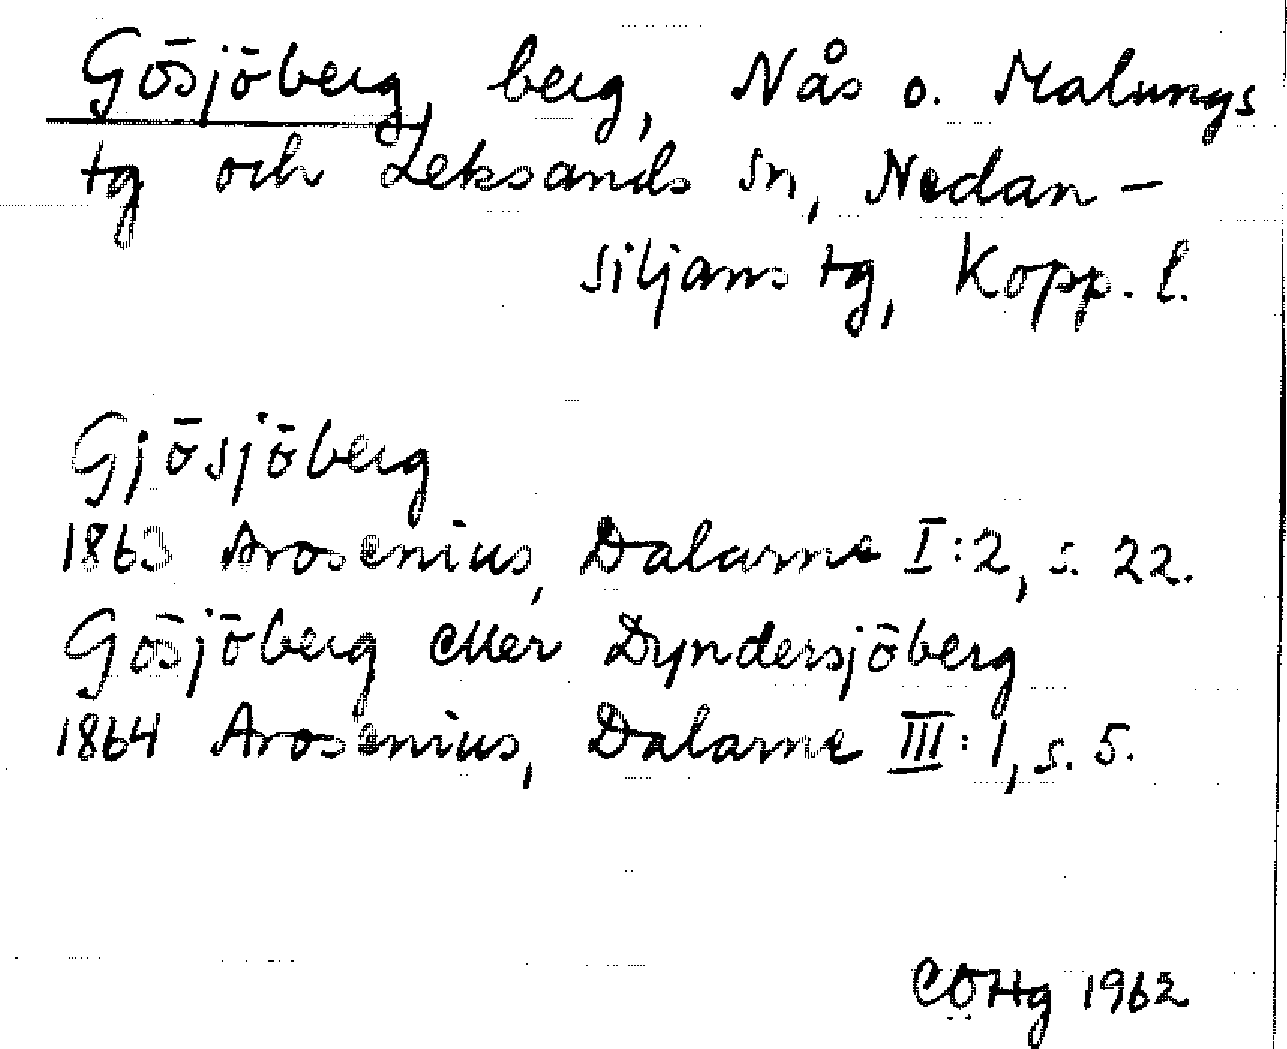 Gösjöberg, berg, Nås o. Malungs
tg och Leksands sn, Nedan-
siljans tg, Kopp. l.
Gjösjöberg
1863 Arosenius, Dalarne I:2, s. 22.
Gösjöberg eller Dyndersjöberg
1864 Arosenius, Dalarne III:1, s. 5.
CÖHg 1962